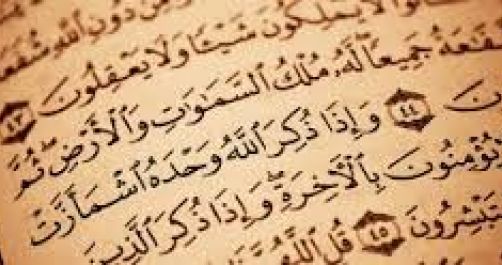 مِن دُونِ ٱللَّهِ شُفَعَآ
لَا يَمْلِكُونَ شَيْـًٔا وَلَا يَعْقِلُونَ ٤٣
جَمِيعًا لَّهُۥ مُلْكُ ٱلسَّمَـٰوَٰتِ وَٱلْأَرْضِ ثُمَّ
٤٤ وَإِذَا ذُكِرَ ٱللَّهُ وَحْدَهُ ٱشْمَأَزَّتْ
يُؤْمِنُونَ بِٱلْـَٔاخِرَةِ وَإِذَا ذُكِرَ ٱلَّذِينَ
يَسْتَبْشِرُونَ ٤٥ قُلِ